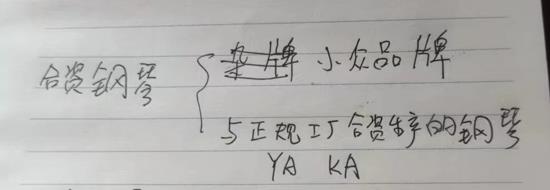 合资钢琴
杂牌 小众品牌
与正规工厂合资生产的钢琴
YA KA